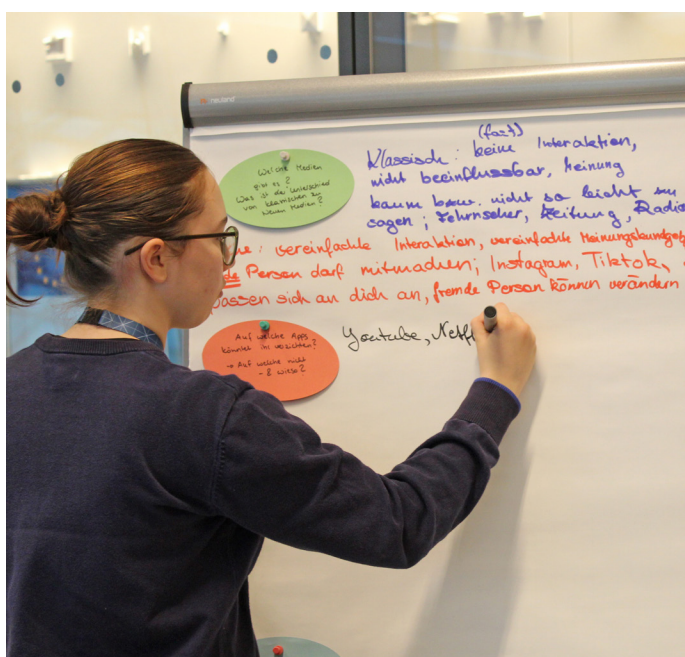 neuland
Welche Medien
gibt es?
Was ist der Unterschied
von klassischen zu
neuen Medien?
(fast)
Klassisch: keine Interaktion,
nicht beeinflussbar, Meinung
kaum bzw. nicht so leicht zu
sagen; Fehrnseher, Zeitung, Radio
: vereinfachte Interaktion, vereinfachte
Person darf mitmachen; Instagram, Tiktok,
passen sich an dich an, fremde Person können verändern
Auf welche Apps
könntet ihr verzichten?
→ Auf welche nicht
- & wieso?
Youtube, Netfl